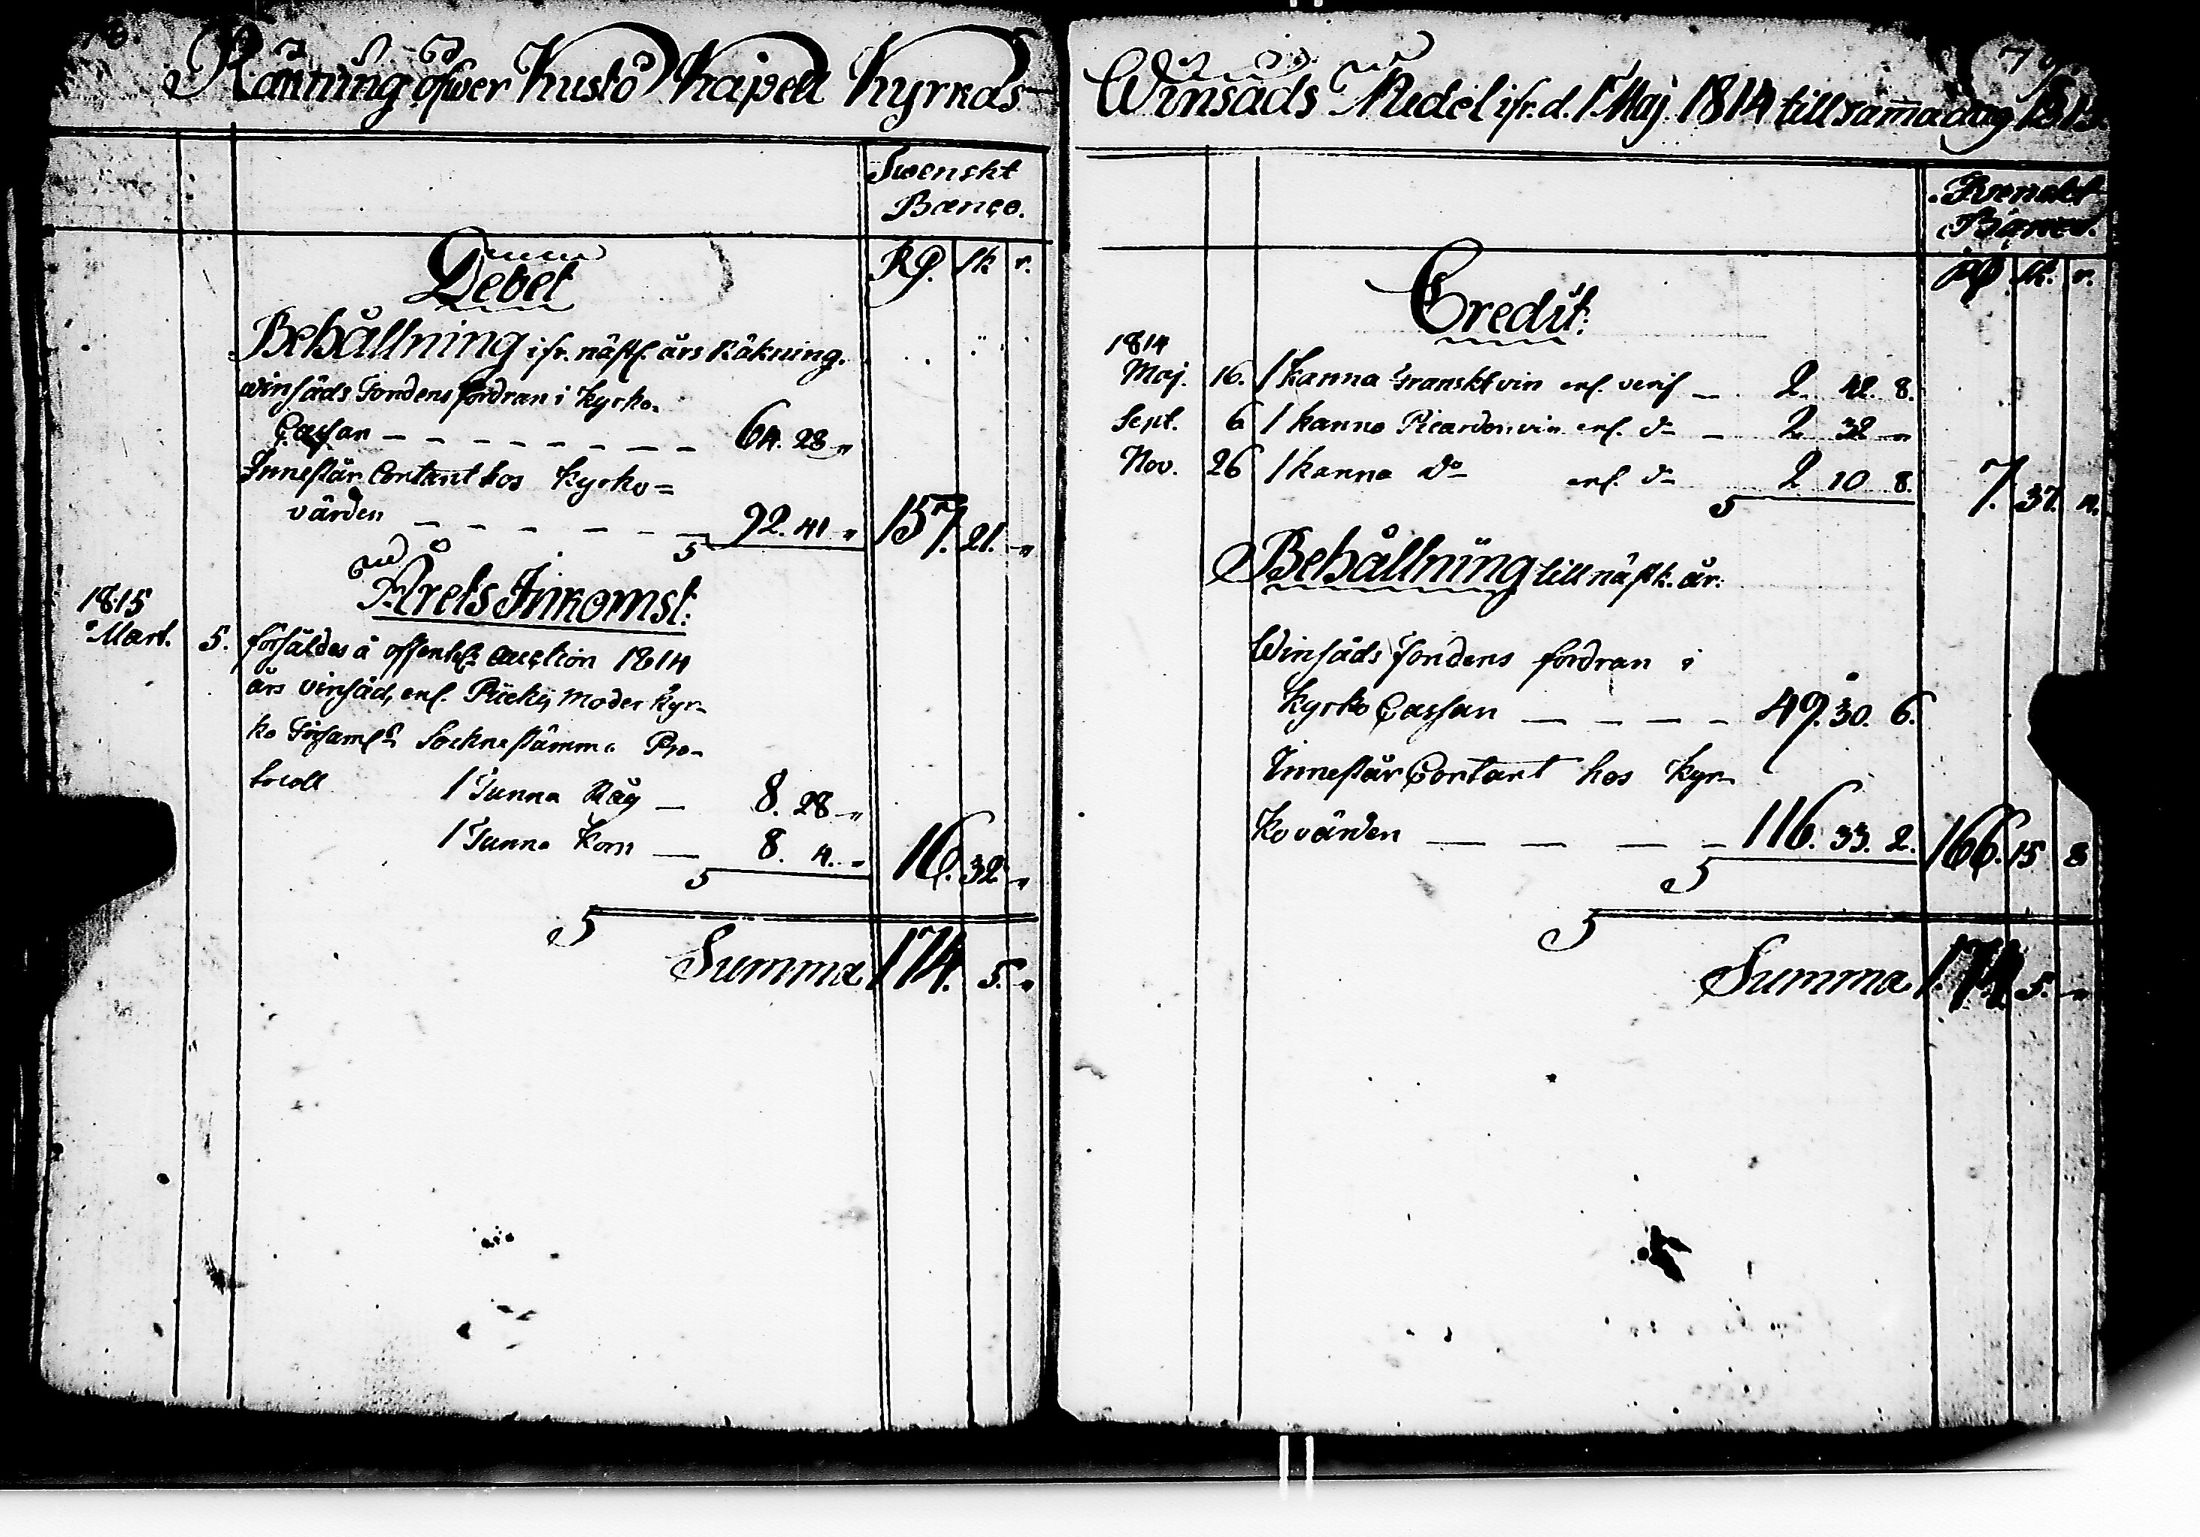 Räkning öfwer Kustö Kapell Kyrkas
Swenskt
Banco.
Debet
Rd. sk r.
Behållning ifr. nästl. års Räkning.
winsäds Fondens fordran i Kyrko-
Cassan — — — — — — — — 64. 28 „
Innestår Contant hos Kyrko=
värden — — — — — — 92. 41 „ 157. 21. „
Årets Inkomst:
1815
Mart. 5. försåldes å offentl. auction 1814
års vinsäd, enl. Pückij Moder kyr-
ko Församls Sockne stämma Pro-
tocoll 1 Tunna Råg — 8. 28 „
1 Tunna Korn — 8. 4. „ 16. 32 „
Summa 174. 5. „
79
Winsäds Medel ifr. d. 1 Maj. 1814 till samma dag 1815.
Swenskt
Banco.
Credit:
Rd. sk. r.
1814
Maj. 16. 1 kanna Franskt vin enl. verif — 2. 42. 8.
Sept. 6 1 kanna Picardon vin enl. do — 2 32 „
Nov. 26 1 kanna do enl. do 2 10 8. 7. 37. 4.
Behållning till nästk. år:
Winsäds Fondens fordran i
Kyrko Cassan — — — — 49. 30. 6.
Innestår Contant hos Kyr-
kovärden — — — — 116. 33. 2. 166. 15 8
Summa 174 5. „